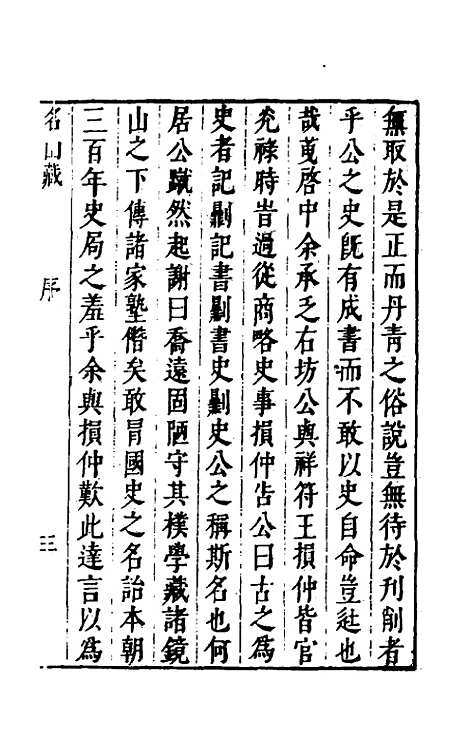 無取於是正而丹青之俗說豈無待於刋削者
乎公之史旣有成書而不敢以史自命豈𨓏也
哉蒐啓中余承乏右坊公與祥符王損仲皆官
光祿時旹過從商略史事損仲告公曰古之爲
史者記劚記書劚書史劚史公之稱斯名也何
居公蹴然起謝曰喬遠固陋守其樸學藏諸鏡
山之下傳諸家塾僭矣敢冐國史之名詒本朝
三百年史局之羞乎余與損仲歎此達言以爲
名山藏 序 三